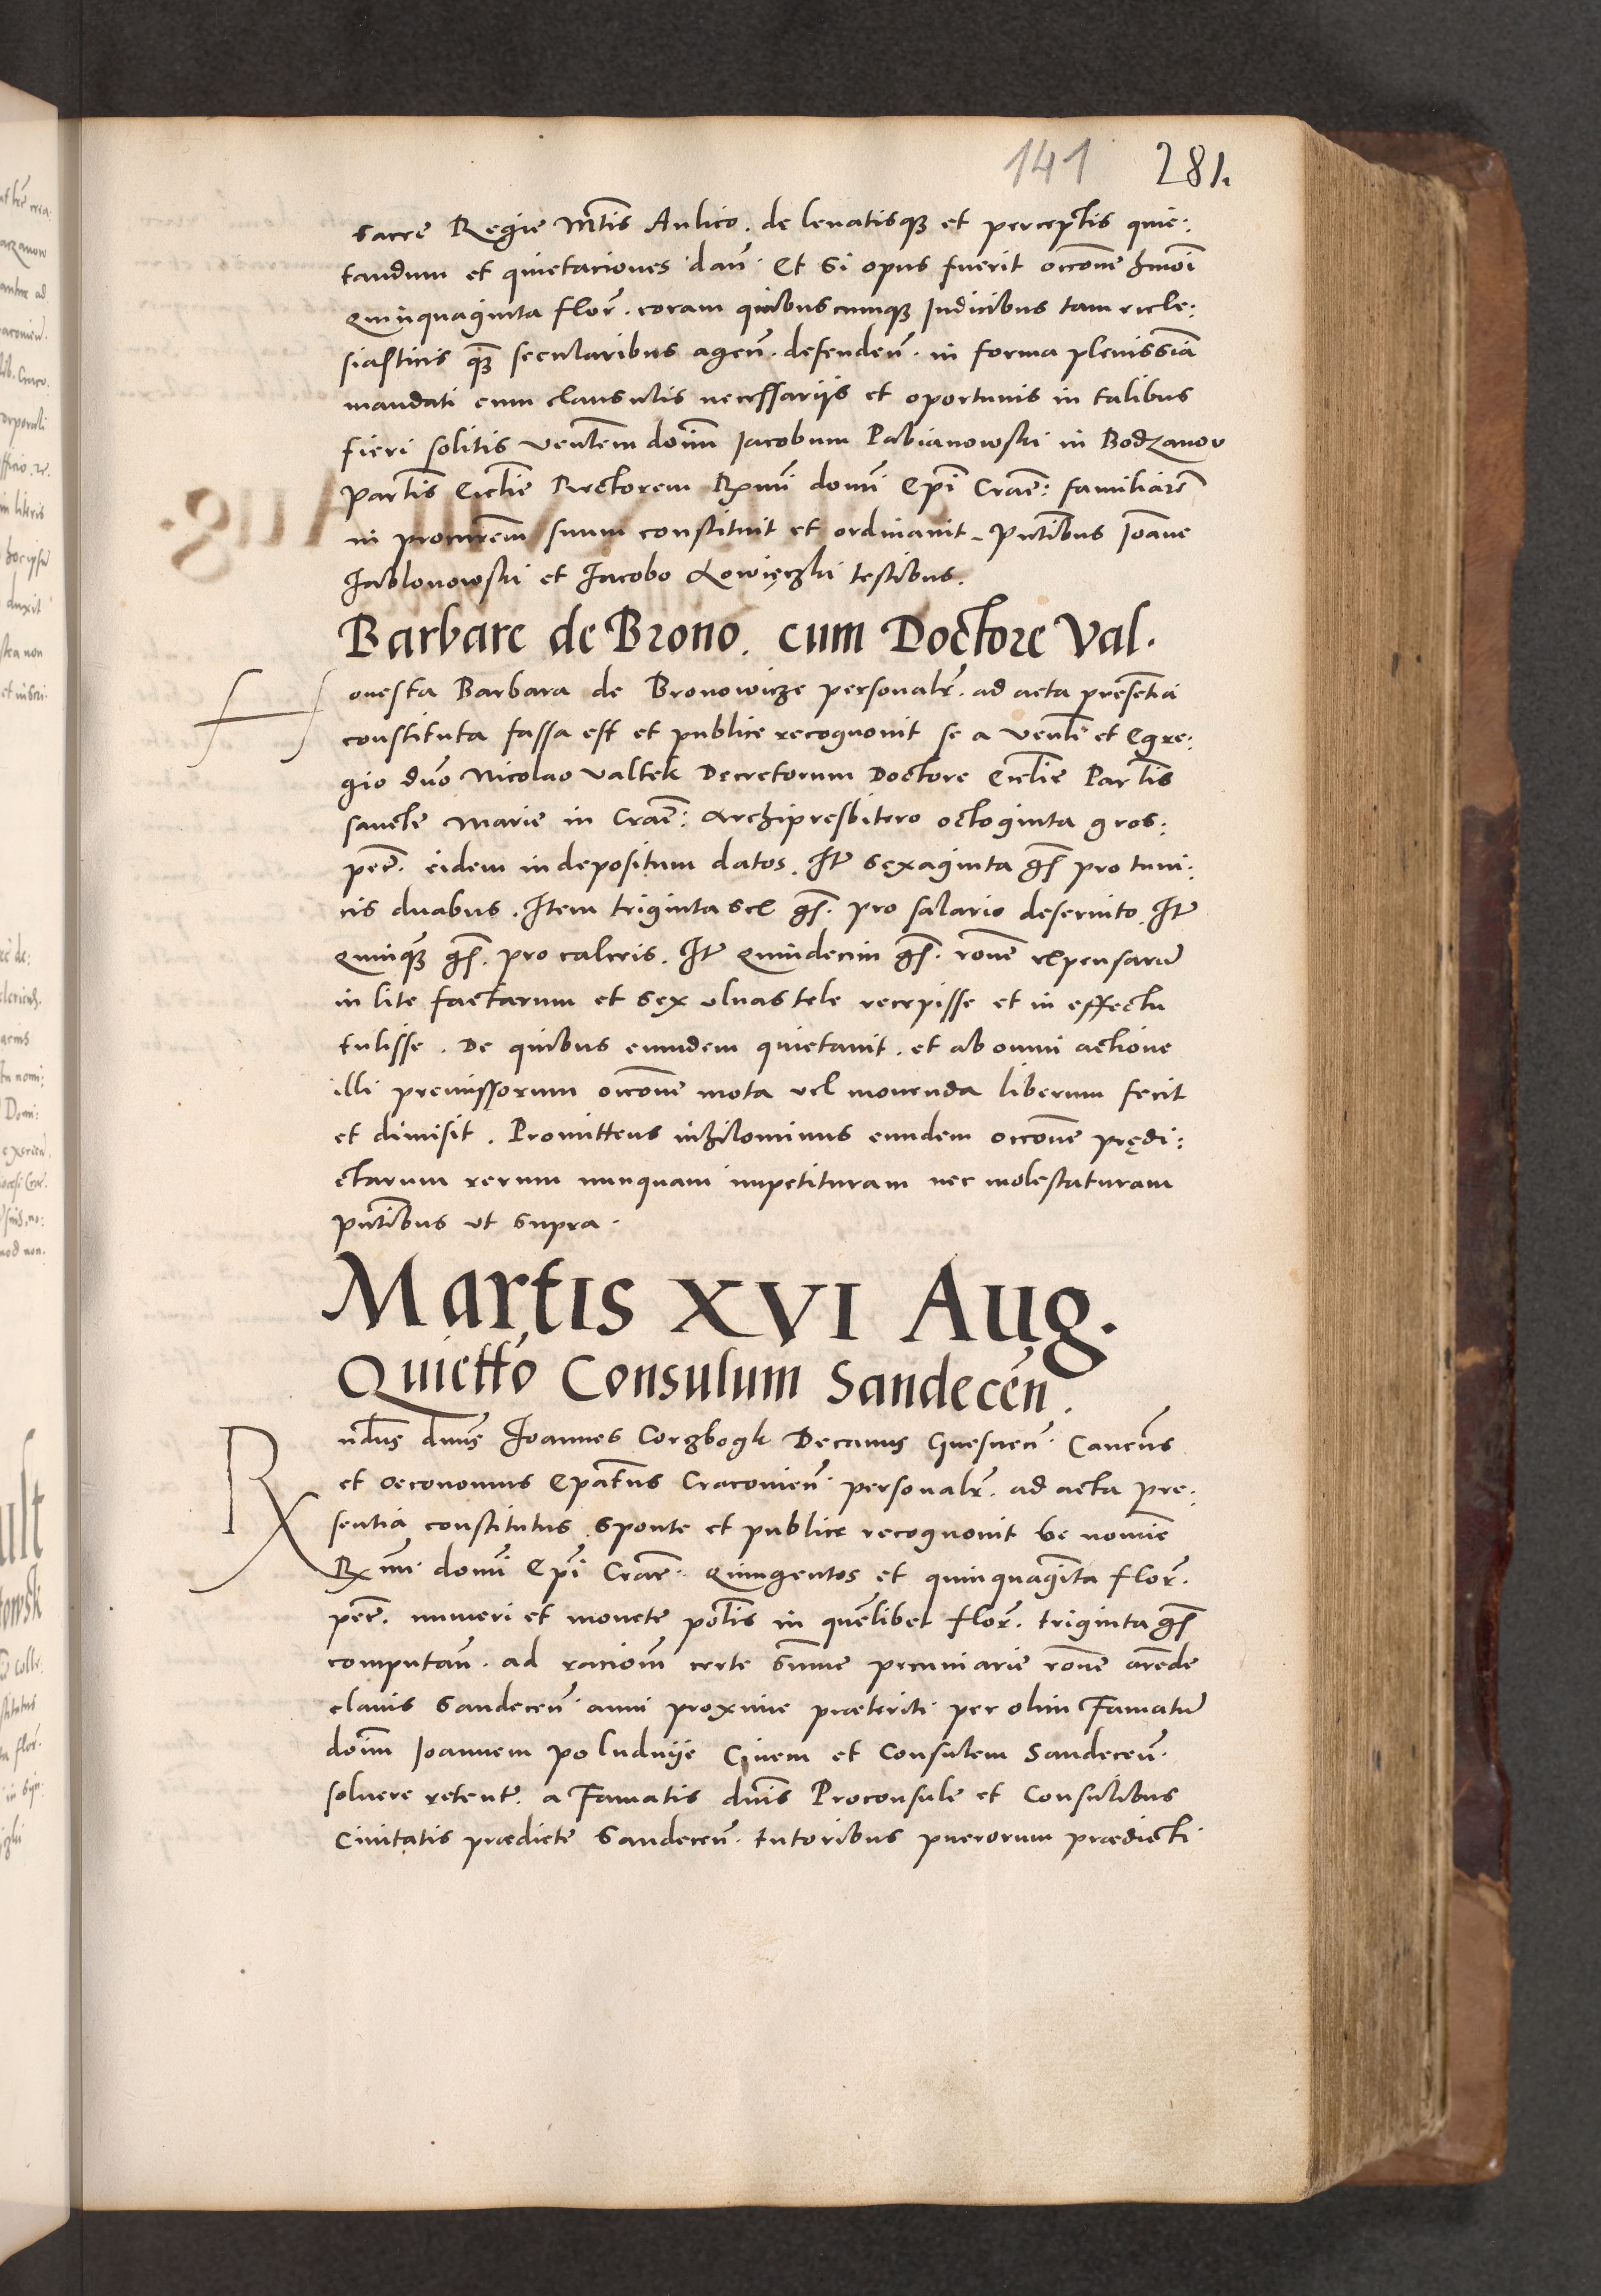 141 281.
sacre Regie Mtis Aulico. de leuatisqz et perceptis quie:
tandum et quietaciones dan̄. Et si opus fuerit occōne hmōi
quinquaginta flor̄. coram quibuscumqz Judicibus tam eccle:
siasticis qz̄ secularibus agen̄. defenden̄. in forma plenissīa
mandati cum clausulis necessarijs et oportunis in talibus
fieri solitis Ven̄lem dom̄ Iacobum Pabianowski in Bodzanow
partis Ecctie Rectorem Rx̄mi domi Ep̄i Cracn̄: familiarē
in procur̄em suum constituit et ordinauit. Pn̄tibus Ioāne
Jablonowski et Jacobo Lowięczki testibus.
Barbare de Brono. cum Doctore Val.
Honesta Barbara de Bronowicze personalr̄. ad acta presentia
constituta fassa est et publice recognouit se a Ven̄li et Egre:
gio dn̄o Nicolao Valtek Decretorum Doctore Ecctie Partis
sancte Marie in Cracn̄: Archipresbitero octoginta gros:
pecc̄. eidem in depositum datos. Itē sexaginta gs̄ pro tuni:
cis duabus. Item triginta sex gs̄. pro salario deseruito. Itē
quinqz̄ gs̄. pro calceis. Itē quindecim gs̄. rōne expensarū
in lite factarum et sex vlnas tele recepisse et in effectu
tulisse. De quibus eundem quietauit. et ab omni actione
illi premissorum occōne mota vel mouenda liberum fecit
et dimisit. Promittens nihilominus eundem occōne prędi:
ctarum rerum nunquam impetituram nec molestaturam
pn̄tibus vt supra.
Martis XVI Aug.
Quietto Consulum Sandecen̄.
Rn̄dus dn̄us Joannes Corzbogk Decanus Gnesnen̄. Cancn̄s
et Oeconomus Ep̄atus Cracouien̄. personalr̄. ad acta pre:
sentia constitutus sponte et publice recognouit se nomīe
Rx̄mi domi Ep̄i Cracn̄. quingentos et quinquaginta flor̄.
pecc̄. numeri et monete polis in quēlibet flor̄. triginta gs̄
computan̄. ad racionm̄ certe sūme pecuniarie rōne arēde
clauis Sandecen̄. anni proxime præteriti per olim Famatū
dom̄ Joannem po ludnije Ciuem et Consulem Sandecen̄.
soluere retente. a Famatis dn̄is Proconsule et Consulibus
Ciuitatis prædicte Sandecen̄. tutoribus puerorum prædicti